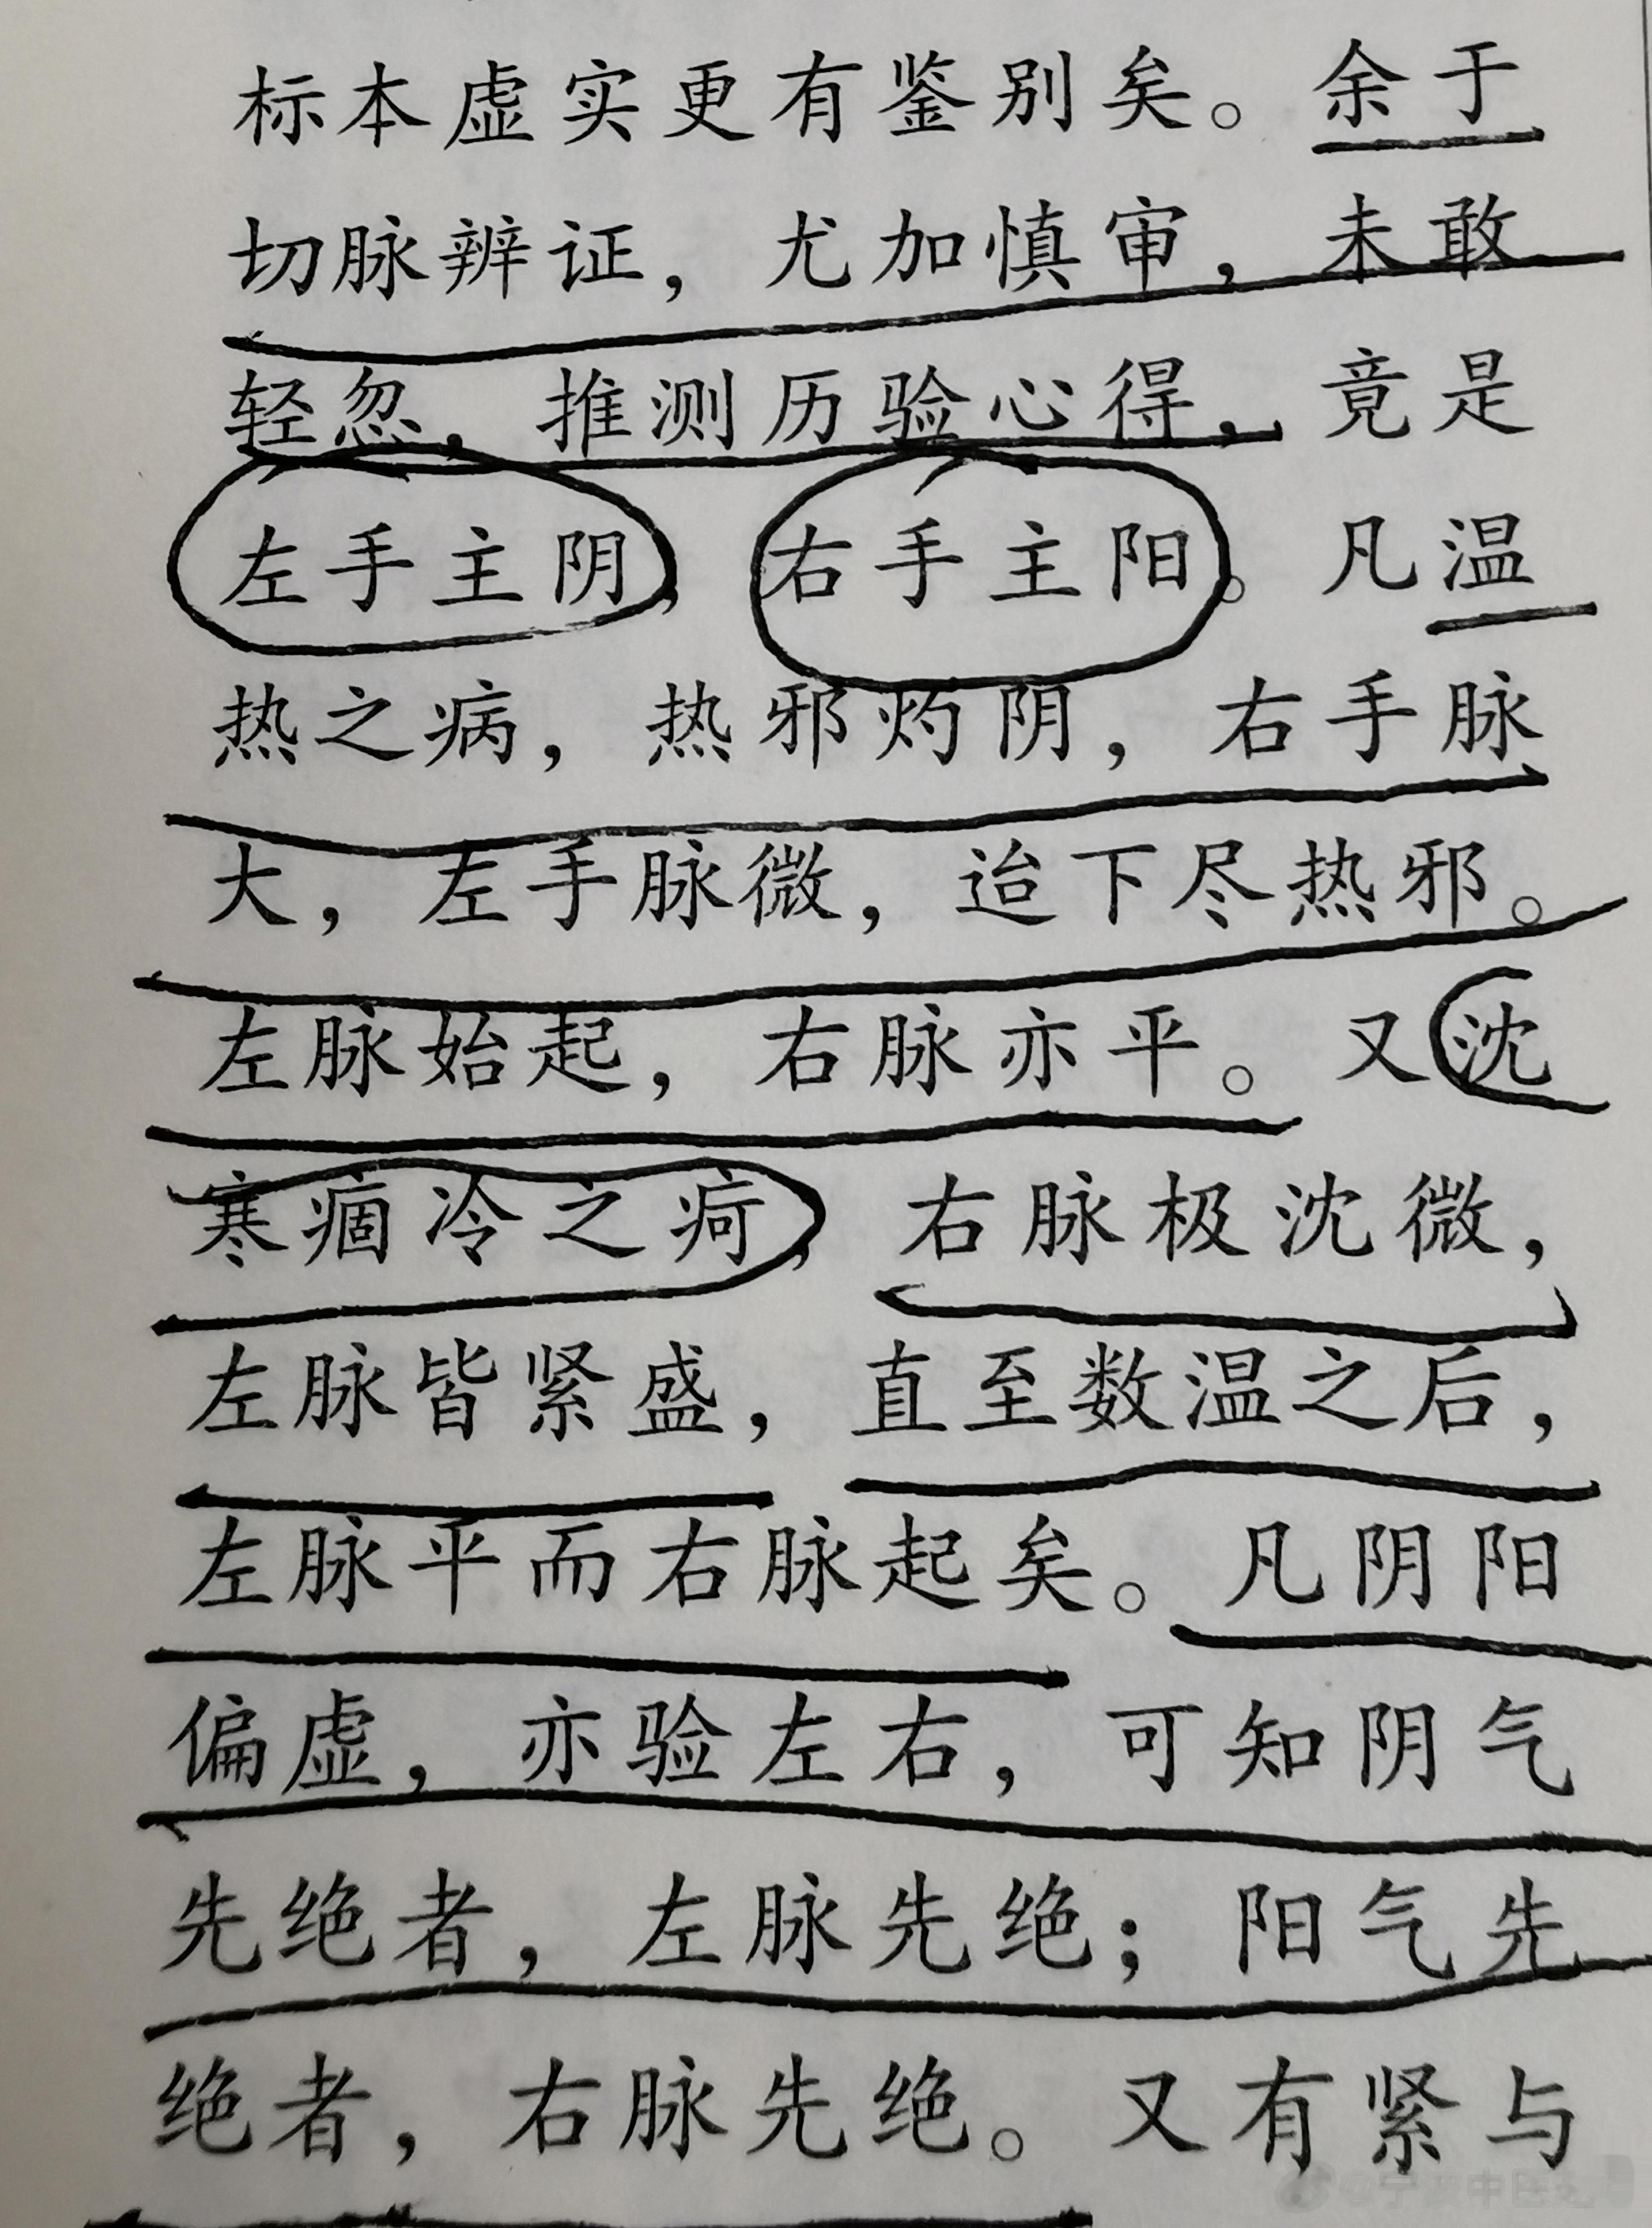 标本虚实更有鉴别矣。余于
切脉辨证，尤加慎审，未敢
轻忽，推测历验心得，竟是
左手主阴，右手主阳。凡温
热之病，热邪灼阴，右手脉
大，左手脉微，迨下尽热邪。
左脉始起，右脉亦平。又沈
寒痼冷之疴，右脉极沈微，
左脉皆紧盛，直至数温之后，
左脉平而右脉起矣。凡阴阳
偏虚，亦验左右，可知阴气
先绝者，左脉先绝；阳气先
绝者，右脉先绝。又有紧与